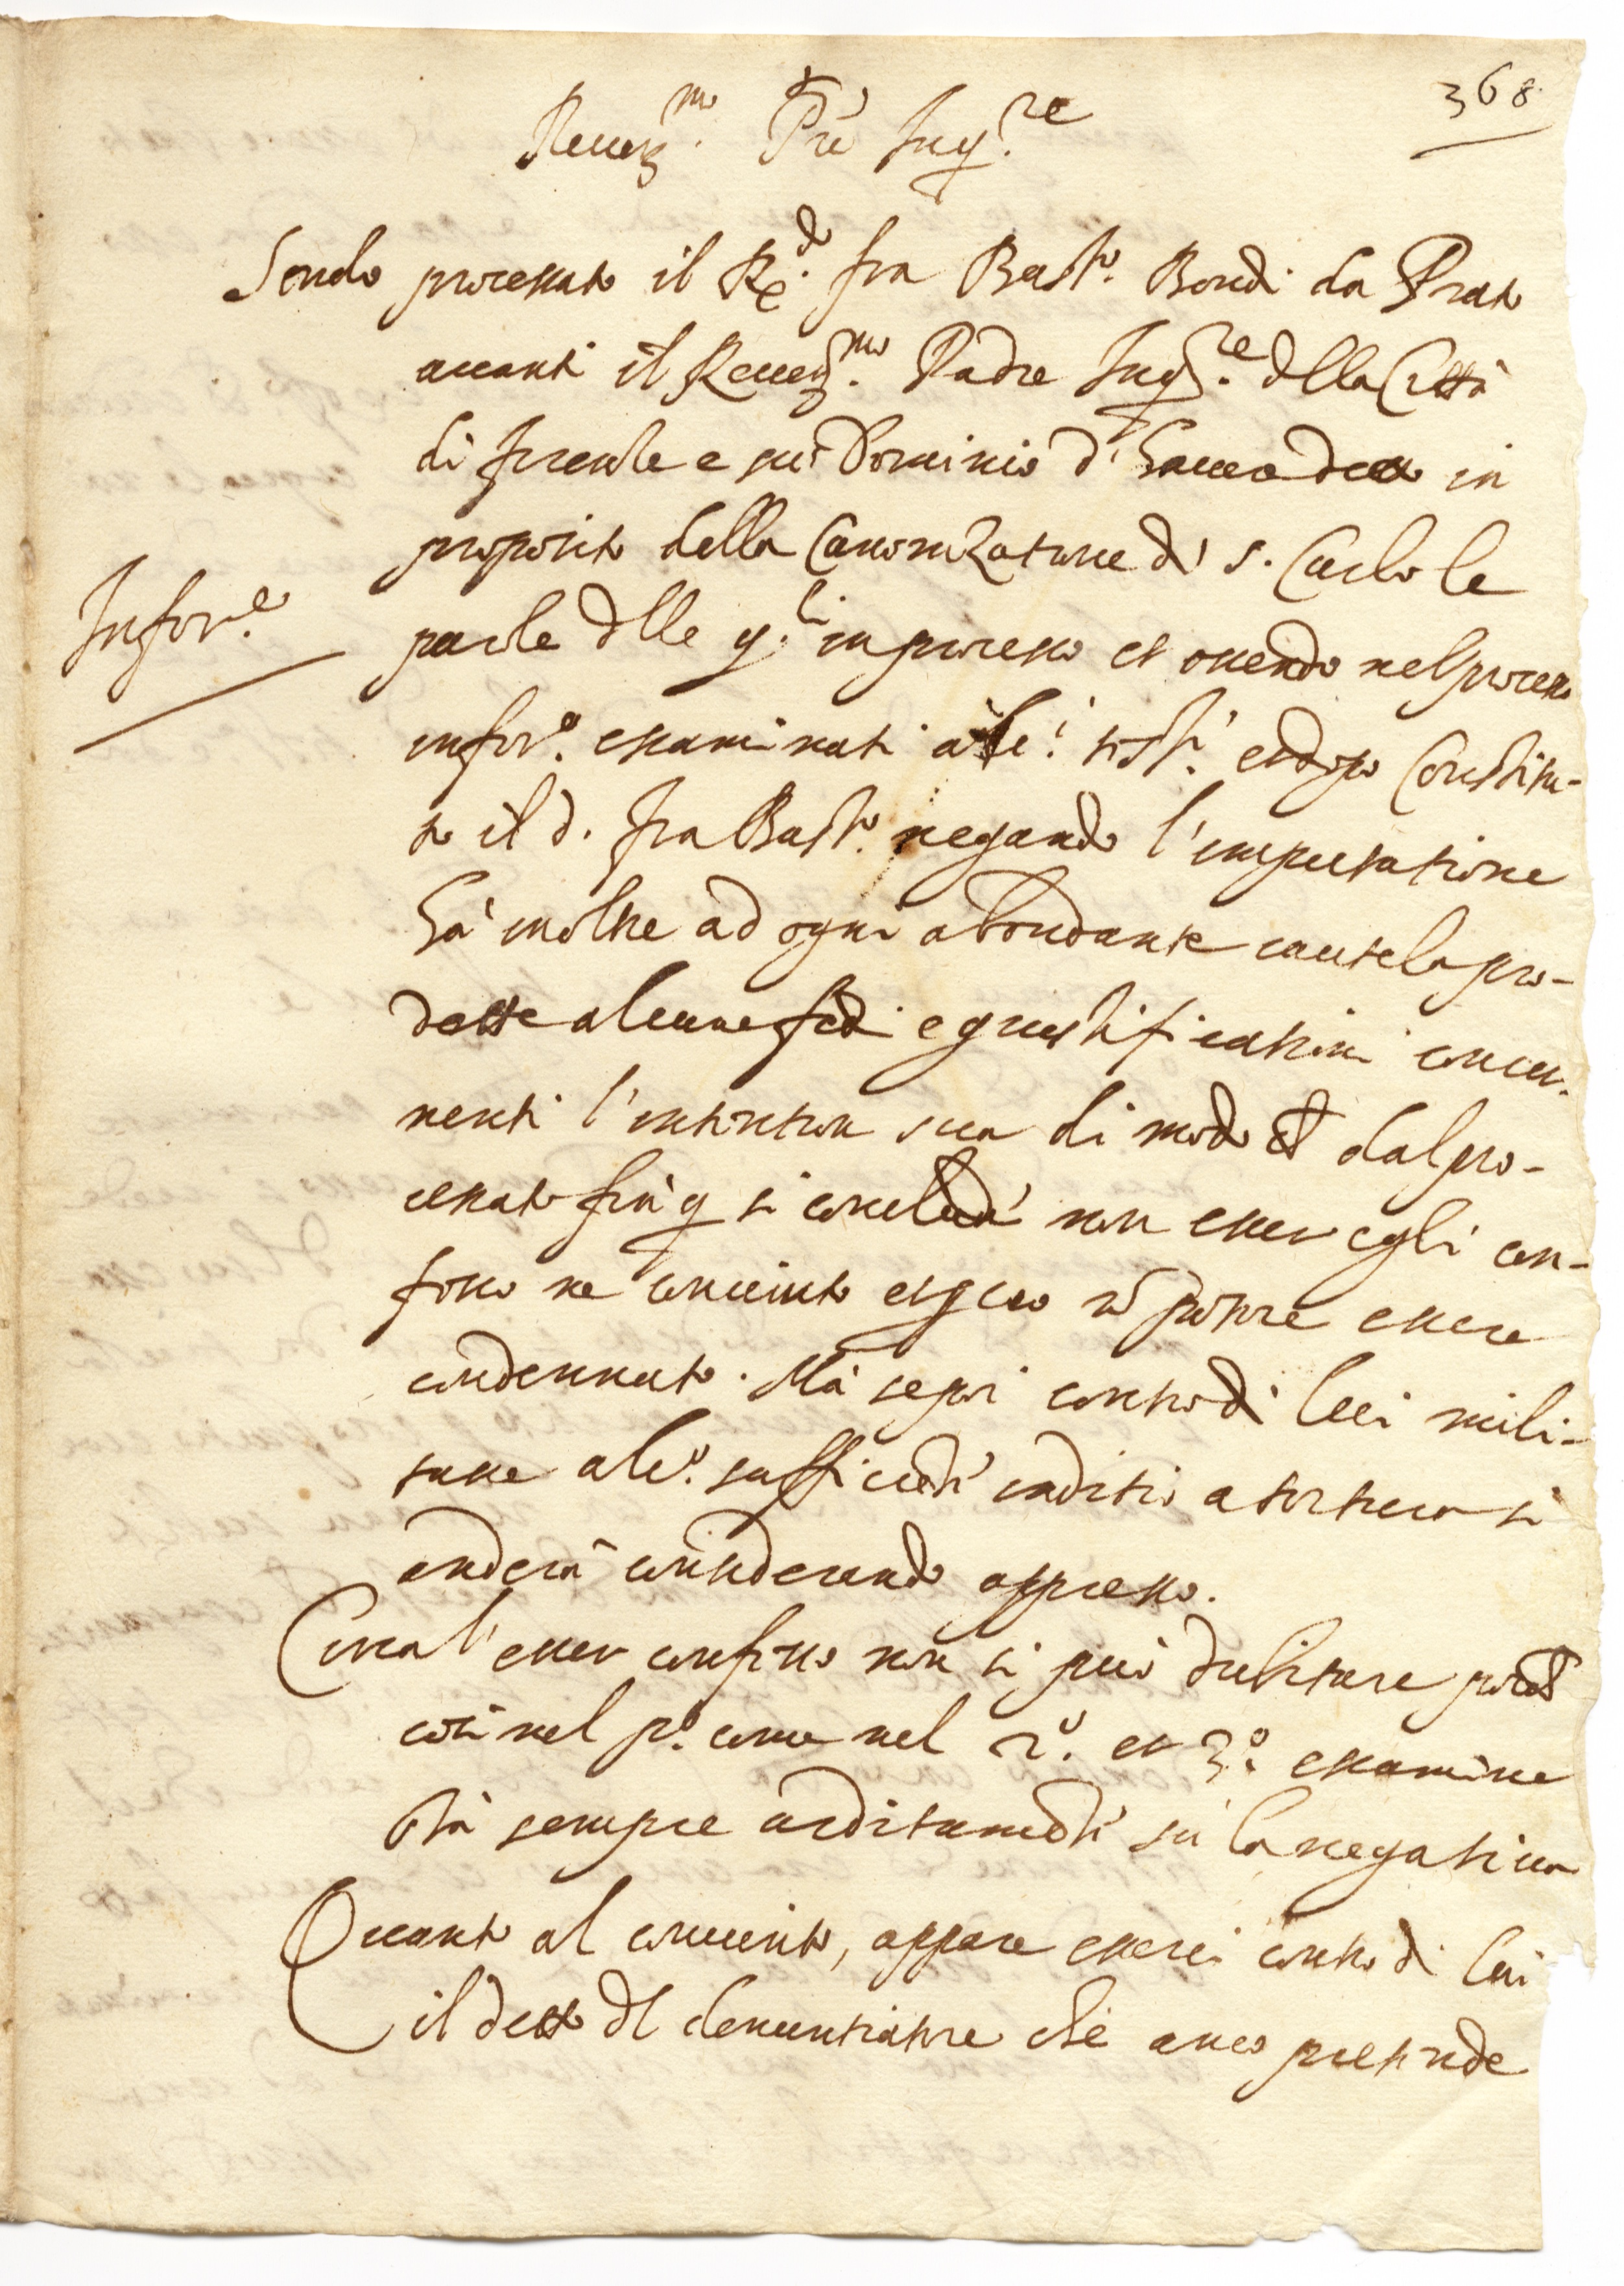 368
Reuer.mo Prè Inq.re
Sendo processato il R.do fra Bast.o Bondi da Prato
avanti il Reuer.mo Padre Inq.re dlla Città
di firenze e suo Dominio d' hauer detto in
proposito della Canonizatione di s. Carlo le
Infor.e
parole dlle q.li in processo et essendo nel processo
infor.o essaminati alc.i test.i et dopo Constitu-
to il d. fra Bast.o negando l'imputatione
hà inoltre ad ogni abondante cautela pro-
dotte alcune fedi e giustificationi concer-
nenti l'intention sua di modo ch dal pro-
cessato fin q si conclude non esser egli con-
fesso ne conuinto et p cio nõ potere essere
condennato. Mà se poi contro di lui mili-
tano alc.o sufficiẽti inditio a tortura si
anderà considerando appresso.
Circa l'esser confesso non si può dubitare poich
così nel p.o come nel 2.o et 3.o essamine
stà sempre arditamẽte sù la negatiua
Quanto al conuinto, appare esserci contro di lui
il detto dl denuntiatore che anco pretende